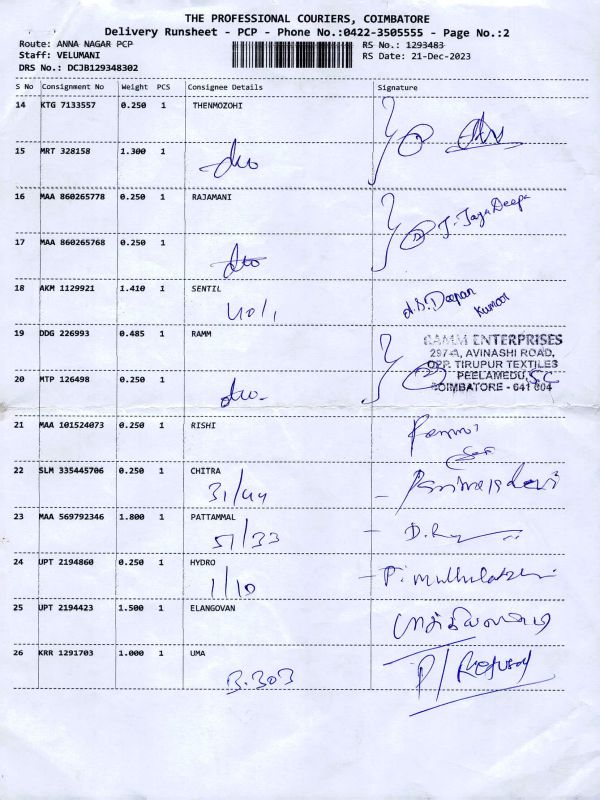 THE PROFESSIONAL COURIERS, COIMBATORE
Delivery Runsheet - PCP - Phone No.:0422-3505555 - Page No.:2
Route: ANNA NAGAR PCP RS No.: 1293483
Staff: VELUMANI RS Date: 21-Dec-2023
DRS No.: DCJB129348302
S No Consignment No Weight PCS Consignee Details Signature
14 KTG 7133557 0.250 1 THENMOZOHI
15 MRT 328158 1.300 1
16 MAA 860265778 0.250 1 RAJAMANI
J. JayaDeepa
17 MAA 860265768 0.250 1
18 AKM 1129921 1.410 1 SENTIL
Deepan
Kumar
19 DDG 226993 0.485 1 RAMM
RAMM ENTERPRISES
297-A, AVINASHI ROAD,
OPP. TIRUPUR TEXTILES
PEELAMEDU, S.C
COIMBATORE - 641 004
20 MTP 126498 0.250 1
21 MAA 101524073 0.250 1 RISHI
22 SLM 335445706 0.250 1 CHITRA
31/44
23 MAA 569792346 1.800 1 PATTAMMAL
51/33
24 UPT 2194860 0.250 1 HYDRO
1/10
25 UPT 2194423 1.500 1 ELANGOVAN
26 KRR 1291703 1.000 1 UMA
B.303